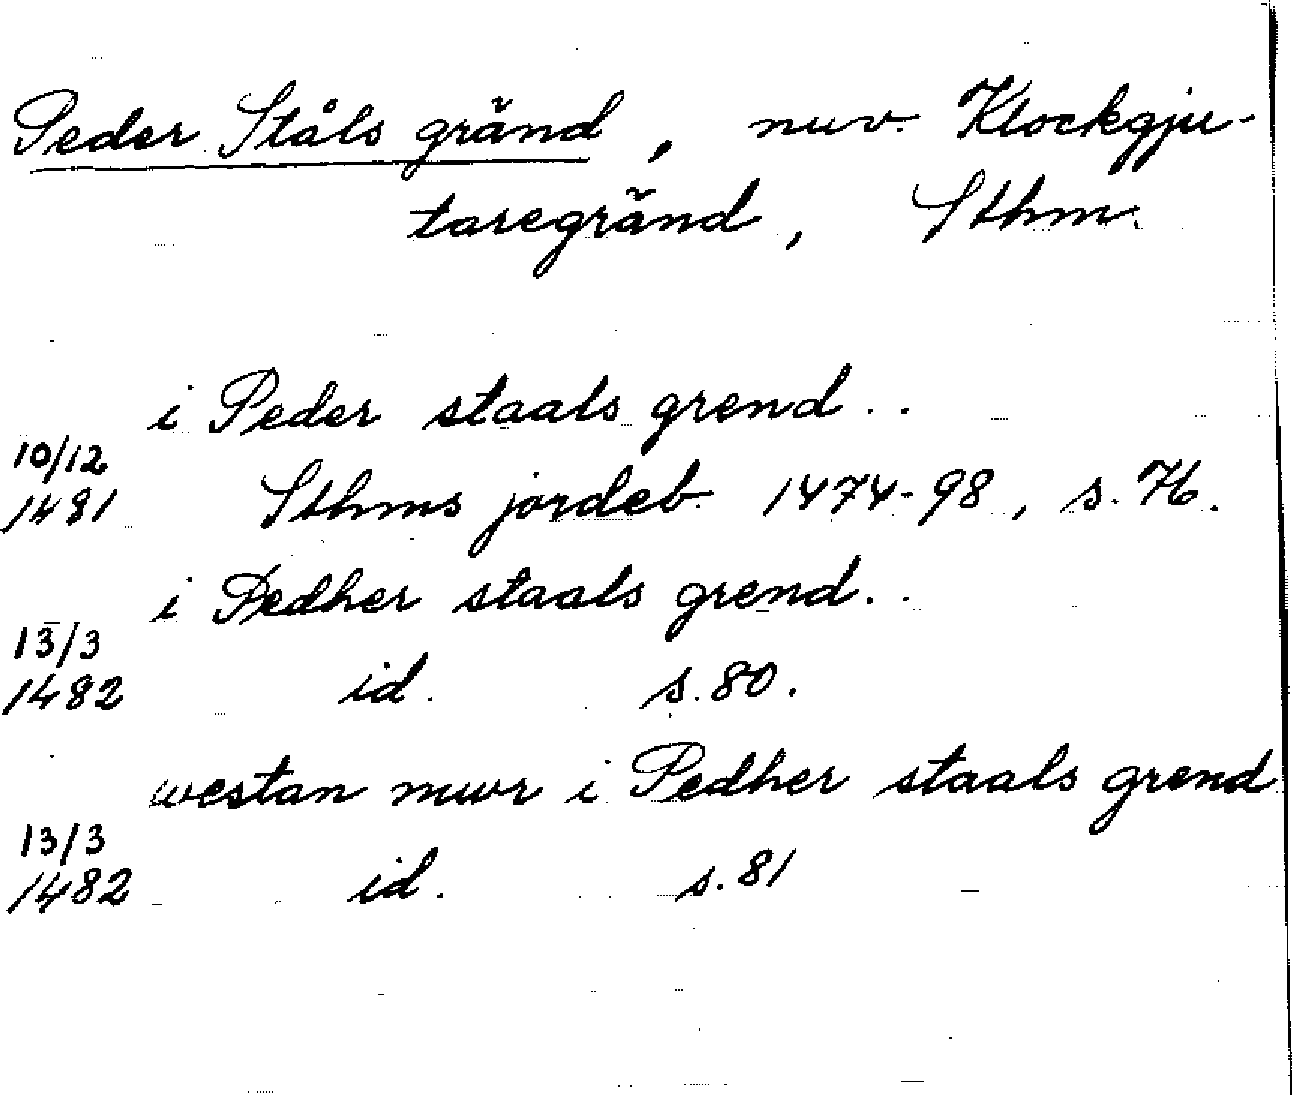 Peder Ståls gränd, nuv. Klockgju-
taregränd, Sthm.
i Peder staals grend..
10/12
1481 Sthms jordeb. 1474-98, s. 76.
i Pedher staals grend..
13/3
1482 id. s. 80.
westan mwr i Pedher staals grend
13/3
1482 id. s. 81